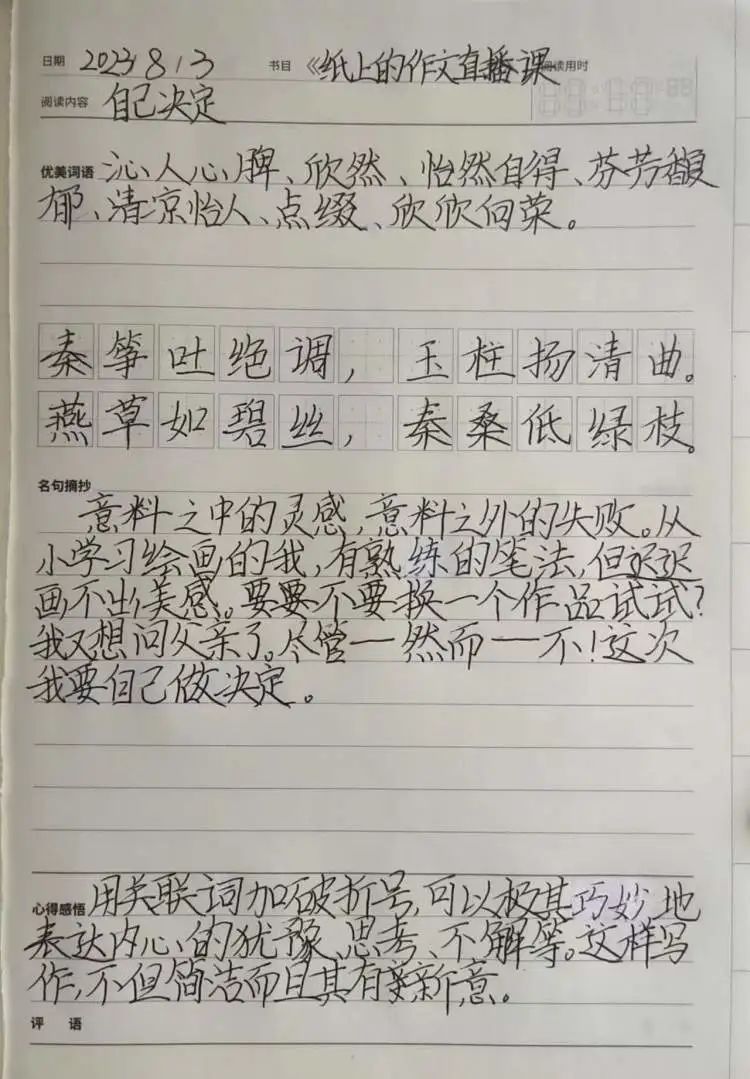 日期 2023 8 13 书目《纸上的作文直播课 阅读用时
阅读内容 自己决定
优美词语 沁人心脾、欣然、怡然自得、芬芳馥
郁、清凉怡人、点缀、欣欣向荣。
秦筝吐绝调，玉柱扬清曲。
燕草如碧丝，秦桑低绿枝。
名句摘抄
意料之中的灵感，意料之外的失败。从
小学习绘画的我，有熟练的笔法，但迟迟
画不出美感。要要不要换一个作品试试？
我又想问父亲了。尽管一然而一不！这次
我要自己做决定。
心得感悟 用关联词加破折号，可以极其巧妙地
表达内心的犹豫、思考、不解等。这样写
作，不但简洁而且其有新意。
评 语